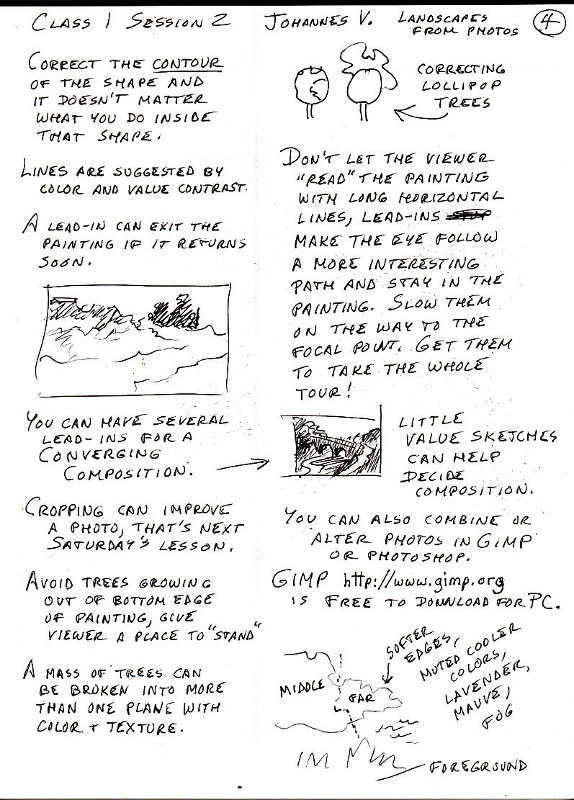 CLASS 1 SESSION 2
JOHANNES V. LANDSCAPES
FROM PHOTOS
4
CORRECT THE CONTOUR
OF THE SHAPE AND
IT DOESN'T MATTER
WHAT YOU DO INSIDE
THAT SHAPE.
LINES ARE SUGGESTED BY
COLOR AND VALUE CONTRAST.
A LEAD-IN CAN EXIT THE
PAINTING IF IT RETURNS
SOON.
YOU CAN HAVE SEVERAL
LEAD-INS FOR A
CONVERGING
COMPOSITION.
CROPPING CAN IMPROVE
A PHOTO, THAT'S NEXT
SATURDAY'S LESSON.
AVOID TREES GROWING
OUT OF BOTTOM EDGE
OF PAINTING, GIVE
VIEWER A PLACE TO "STAND"
A MASS OF TREES CAN
BE BROKEN INTO MORE
THAN ONE PLANE WITH
COLOR + TEXTURE.
CORRECTING
LOLLIPOP
TREES
DON'T LET THE VIEWER
"READ" THE PAINTING
WITH LONG HORIZONTAL
LINES, LEAD-INS
MAKE THE EYE FOLLOW
A MORE INTERESTING
PATH AND STAY IN THE
PAINTING. SLOW THEM
ON THE WAY TO THE
FOCAL POINT. GET THEM
TO TAKE THE WHOLE
TOUR!
LITTLE
VALUE SKETCHES
CAN HELP
DECIDE
COMPOSITION.
YOU CAN ALSO COMBINE OR
ALTER PHOTOS IN GIMP
OR PHOTOSHOP.
GIMP http://www.gimp.org
IS FREE TO DOWNLOAD FOR PC.
MIDDLE
FAR
SOFTER
EDGES,
MUTED COOLER
COLORS,
LAVENDER,
MAUVE,
FOG
FOREGROUND